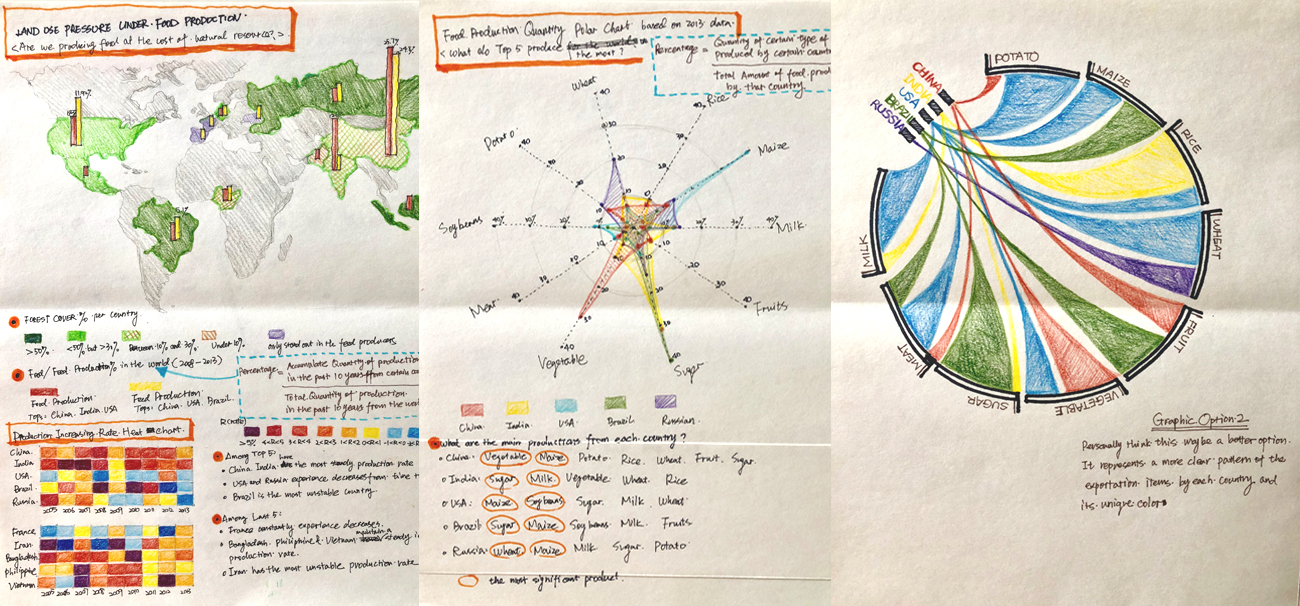 LAND USE PRESSURE UNDER FOOD PRODUCTION.
<Are we producing food at the cost of natural resources?>
FOREST COVER % per country
>50%
<50% but >31%
Between 10% and 30%
Under 10%
only stand out in the feed producers
Food/Feed Production% in the world (2008-2013)
Food Production:
Top3: China. India. USA
Feed Production:
Top3: China. USA. Brazil
Percentage =
Accumulate Quantity of production
in the past 10 years from certain
Total Quantity of production
in the past 10 years from the
Production Increasing Rate Heat Chart.
R(rate)
China
India
USA
Brazil
Russia
2005 2006 2007 2008 2009 2010 2011 2012 2013
France
Iran
Bangladesh
Philippine
Vietnam
2005 2006 2007 2008 2009 2010 2011 2012 2013
Among TOP5:
China, India have the most steady production rate
USA and Russia experience decreases from time
Brazil is the most unstable country.
Among Last 5:
France constantly experience decreases.
Bangladesh, Philippine & Vietnam maintain a steady
production rate.
Iran has the most unstable production rate
Food Production Quantity Polar Chart based on 2013 data.
<What do Top 5 produce for the world the most?
Percentage =
Quantity of certain type of
produced by certain
Total Amount of food
by that country.
Wheat
Rice
Maize
Milk
Fruits
Sugar
Vegetable
Meat
Soybeans
Potato
China.
India.
USA.
Brazil
Russian.
What are the main productions from each country?
China: Vegetable Maize Potato Rice. Wheat. Fruit. Sugar.
India: Sugar Milk. Vegetable Wheat. Rice
USA: Maize Soybeans Sugar. Milk Wheat
Brazil: Sugar Maize Soybeans. Milk. Fruits
Russia: Wheat Maize Milk Sugar. Potato
the most significant product.
CHINA
INDIA
USA
BRAZIL
RUSSIA
POTATO
MAIZE
RICE
WHEAT
FRUIT
VEGETABLE
SUGAR
MEAT
MILK
Graphic Option 2
Personally think this maybe a better option.
It represents a more clear pattern of the
exportation items by each country and
its unique colors